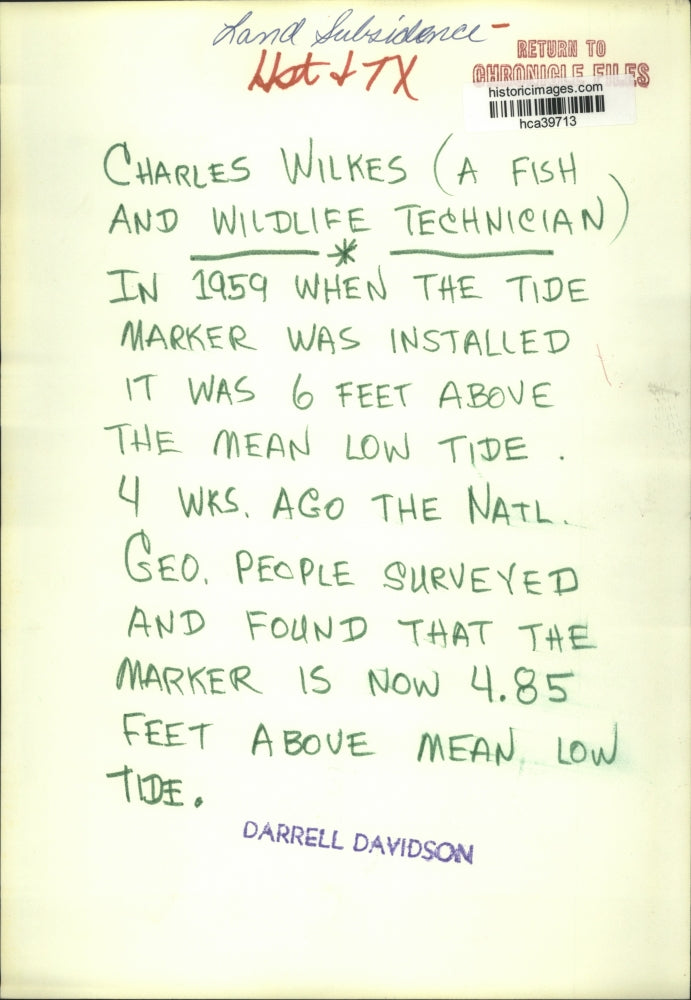 Land Subsidence -
Hst & TX
RETURN TO
CHRONICLE FILES
historicimages.com
hca39713
CHARLES WILKES (A FISH
AND WILDLIFE TECHNICIAN)
*
IN 1959 WHEN THE TIDE
MARKER WAS INSTALLED
IT WAS 6 FEET ABOVE
THE MEAN LOW TIDE .
4 WKS. AGO THE NATL.
GEO. PEOPLE SURVEYED
AND FOUND THAT THE
MARKER IS NOW 4.85
FEET ABOVE MEAN LOW
TIDE.
DARRELL DAVIDSON